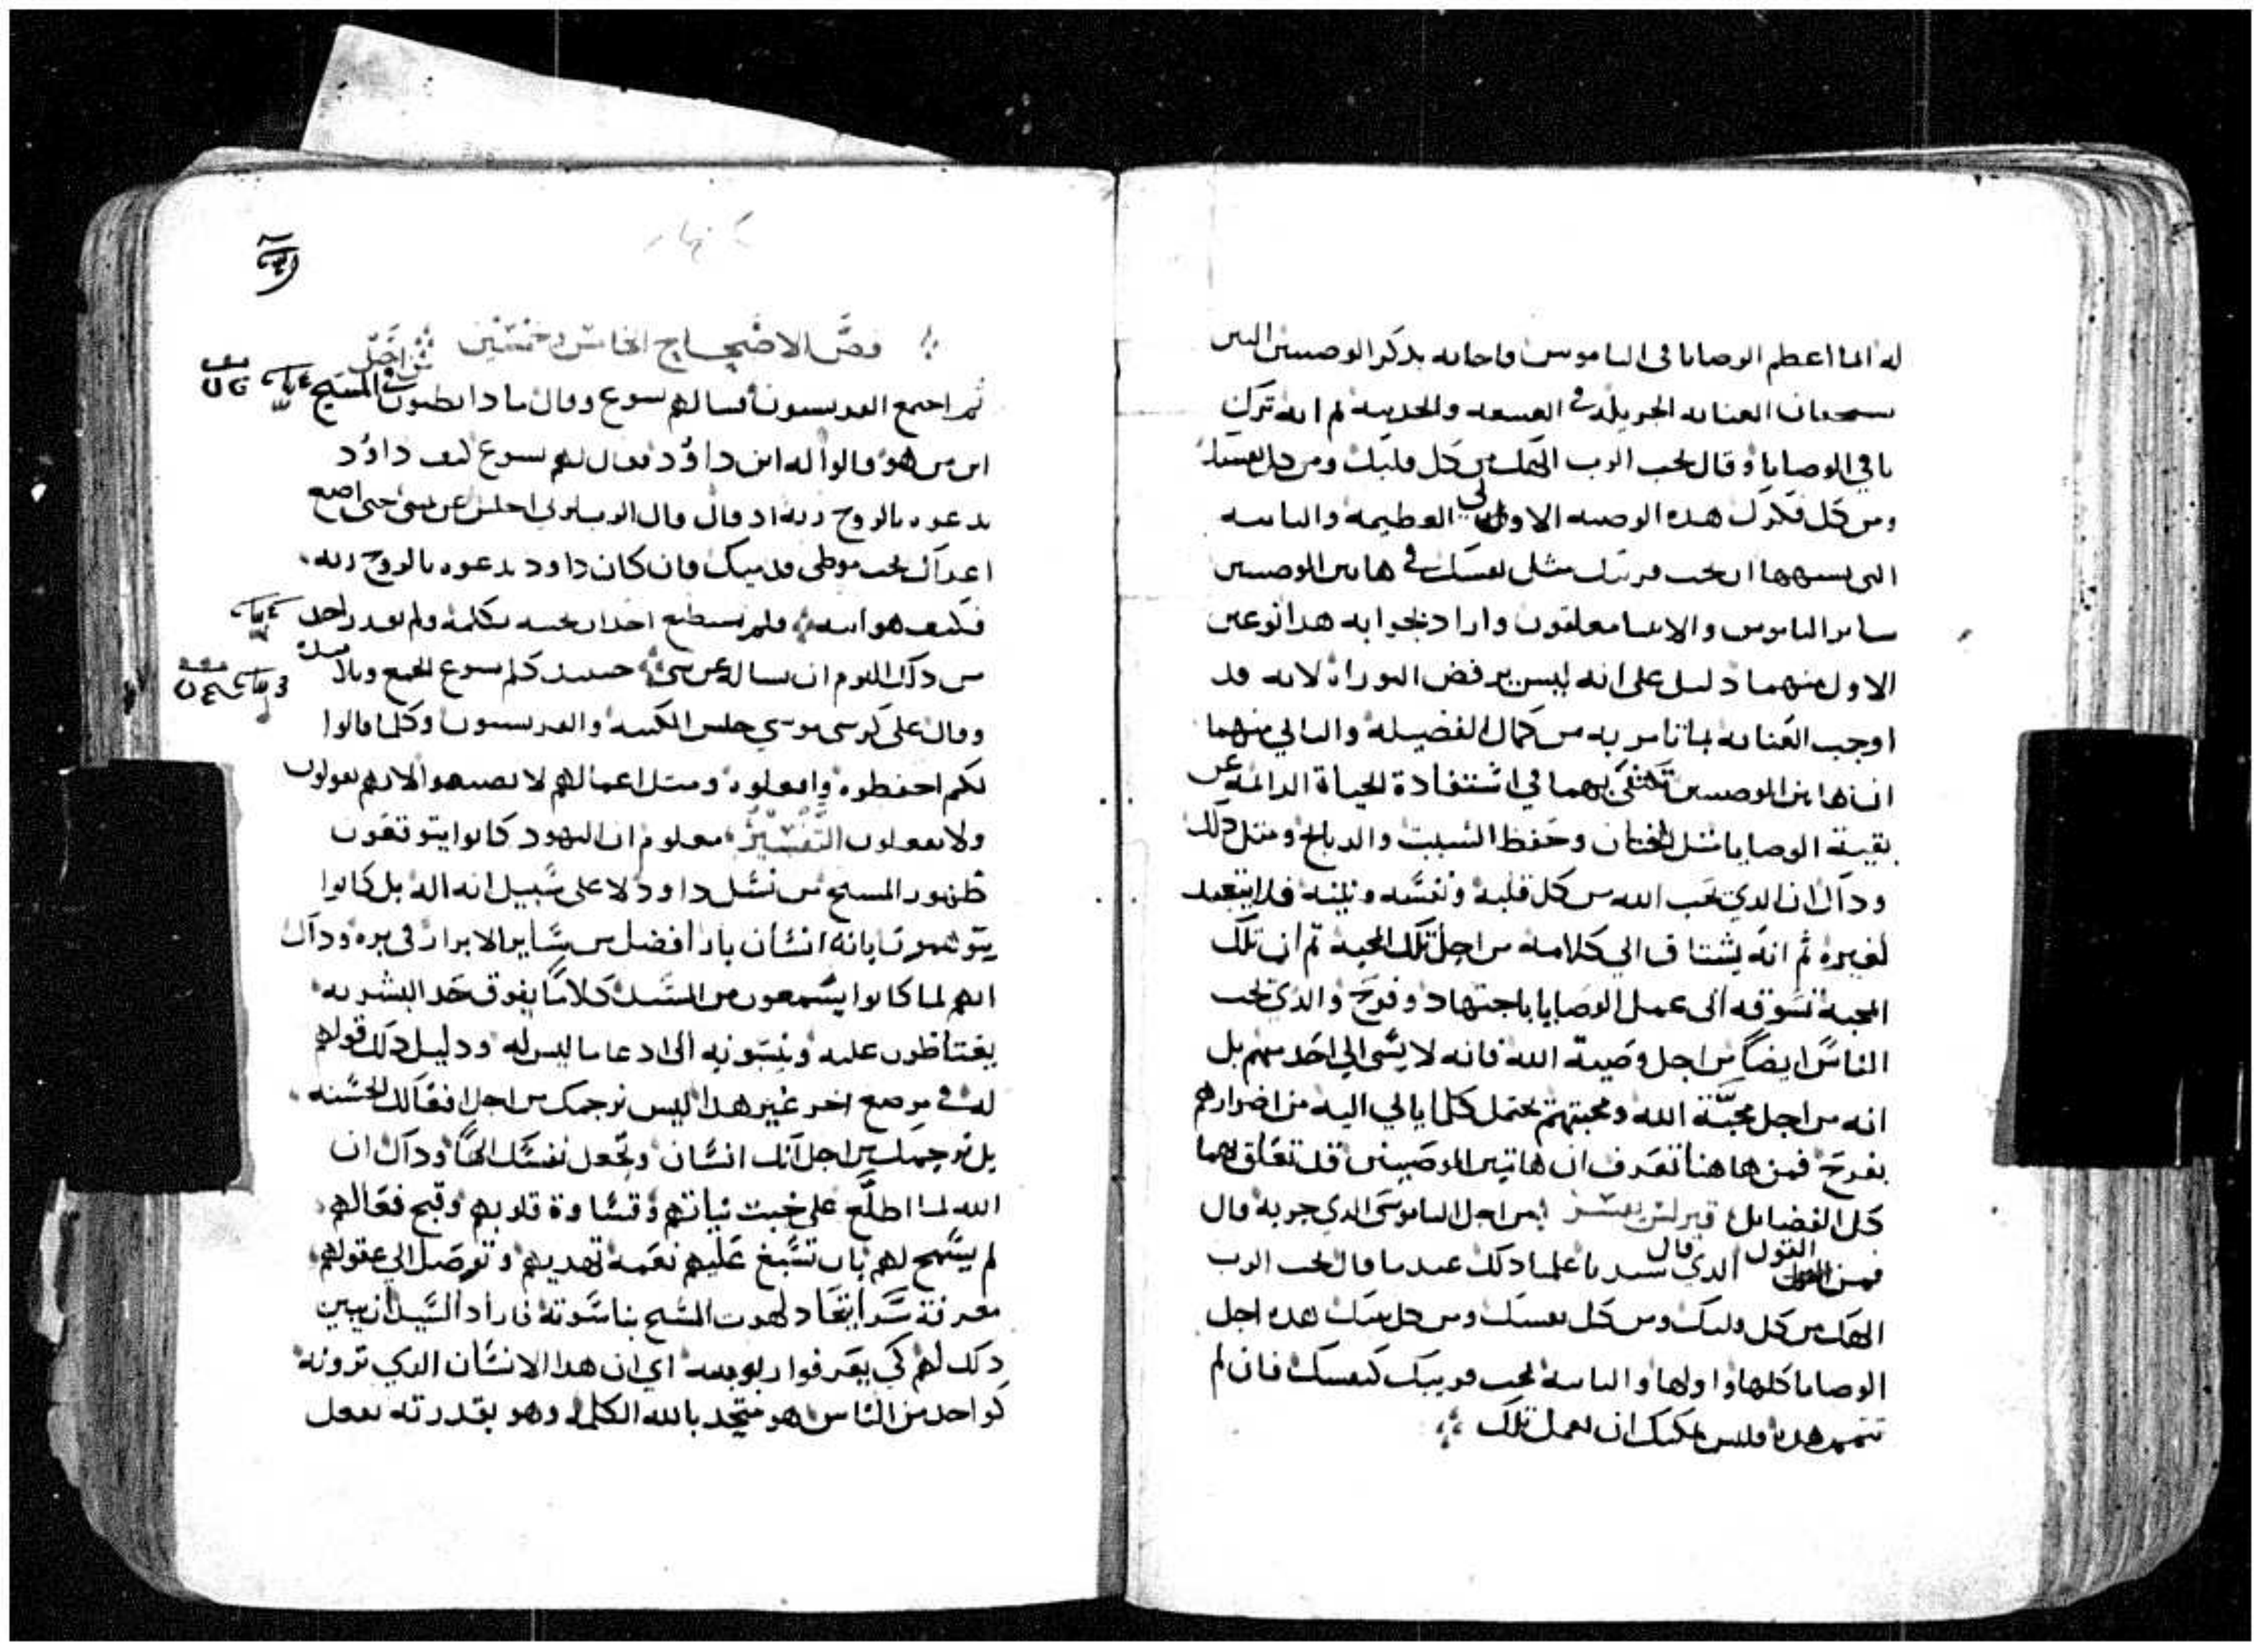 له انما اعظم الوصايا في الناموس فاجابه بذكر الوصيتين التين
باقي الوصايا وقال تحب الرب الهك من كل قلبك ومن كل نفسك
ومن كل فكرك هده الوصيه الاولي العظيمه والثانيه
التي تشبهها ان تحب قريبك مثل نفسك في هاتين الوصيتين
ساير الناموس والانبيا معلقون واراد بجوابه هدا نوعين
الاول منهما دليل على انه ليس يرفض التوراه لانه قد
اوجب العنايه بما تامر به من كمال الفضيله والثاني منهما
ان هاتين الوصيتين تكتفي بهما في اشتفادة الحياة الدائمه عن
بقية الوصايا مثل الختان وحفظ السبت والدبايح ومثل دلك
وداك ان الدي يحب الله من كل قلبه ونفسه ونيته فلا يتعبد
لغيره ثم انه يشتاق الي كلامه من اجل تلك المحبه ثم ان تلك
المحبه تسوقه الى عمل الوصايا باجتهاد وفرح والدي يحب
الناس ايضا من اجل وصية الله فانه لا يسي الي احد منهم بل
انه من اجل محبة الله ومحبتهم يحتمل كلما ياتي اليه من اضرارهم
بفرح فمن هاهنا تعرف ان هاتين الوصيتين قد تعلق بهما
كل الفضايل قيرلس يفسر من اجل الناموسي الدي جربه قال
القول الدي قال سيدنا علمنا دلك عندما قال تحب الرب
الهك من كل قلبك ومن كل نفسك ومن كل نيتك هده اجل
الوصايا كلها واولها والثانيه تحب قريبك كنفسك فان لم
تتمم هده فليس يمكنك ان تعمل تلك
فصل الاصحاح الخامس وخمسين
ثم اجتمع الفريسيون فسالهم يسوع وقال مادا تظنون في المسيح
ابن من هو قالوا له ابن داود فقال لهم يسوع كيف داود
يدعوه بالروح ربه اد قال قال الرب لربي اجلس عن يميني حتى اضع
اعداك تحت موطى قدميك فان كان داود يدعوه بالروح ربه
فكيف هو ابنه فلم يستطع احدا يجيبه بكلمة ولم يقدر احد
من دلك اليوم ان يساله عن شي حينيد كلم يسوع الجمع وتلاميده
وقال على كرسي موسي جلس الكتبه والفريسيون وكلما قالوا
لكم احفظوه وافعلوه ومثل اعمالهم لا تصنعوا لانهم يقولون
ولا يفعلون التفسير معلوم ان اليهود كانوا يتوقعون
ظهور المسيح من نسل داود لا على سبيل انه اله بل كانوا
يتوهمون بانه انسان بار افضل من ساير الابرار في بره وداك
انهم لما كانوا يسمعون من السيد كلاما يفوق حد البشريه
يغتاظون عليه وينسبونه الى ادعا ما ليس له ودليل دلك قولهم
له في موضع اخر غير هدا ليس نرجمك من اجل افعالك الحسنه
بل نرجمك من اجل انك انسان وتجعل نفسك الها وداك ان
الله لما اطلع على خبت نياتهم وقساوة قلوبهم وقبح فعالهم
لم يسمح لهم بان تسبغ عليهم نعمه تهديهم وتوصل الي عقولهم
معرفة سر اتحاد لاهوت المسيح بناسوته فاراد السيد ان يبين
دلك لهم كي يعرفوا ربوبيته اي ان هدا الانسان الدي ترونه
كواحد من الناس هو متحد بالله الكلمه وهو بقدرته يفعل